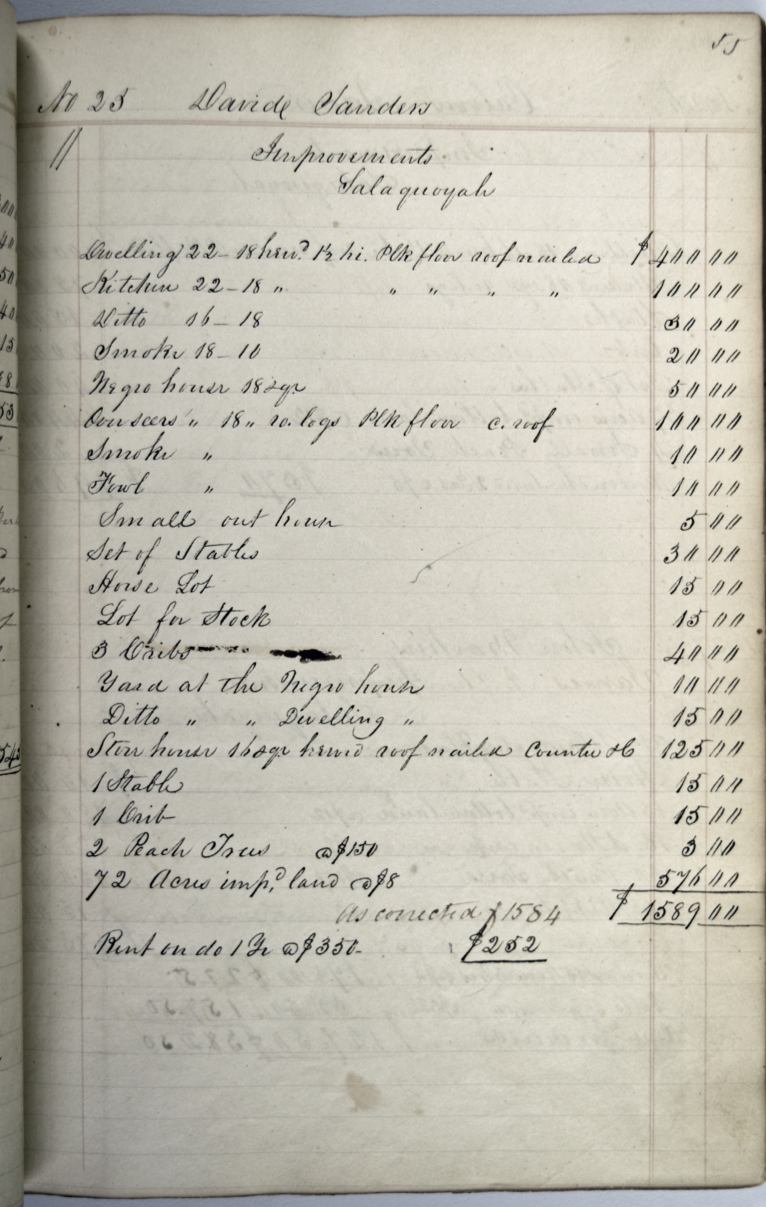 55
No 25 Davide Sanders
11 Improvements
Salaquoyah
Dwelling 22 – 18 hewd. 1½ hi. Plk floor roof nailed $ 400 00
Kitchen 22 – 18 " " " " " 100 00
Ditto 16 – 18 30 00
Smoke 18 – 10 20 00
Negro house 18 sqr 50 00
Overseers " 18 " ro. logs Plk floor c. roof 100 00
Smoke " 10 00
Fowl " 10 00
Small out house 5 00
Set of Stables 30 00
Horse Lot 15 00
Lot for Stock 15 00
3 Cribs 40 00
Yard at the Negro house 10 00
Ditto " " Dwelling " 15 00
Store house 16 sqr hewed roof nailed Counter &c 125 00
1 Stable 15 00
1 Crib 15 00
2 Peach Trees @ $1 50 3 00
72 Acres impd. land @ $8 576 00
As corrected $1584 $ 1589 00
Rent on do 1 Yr @ $350 $252